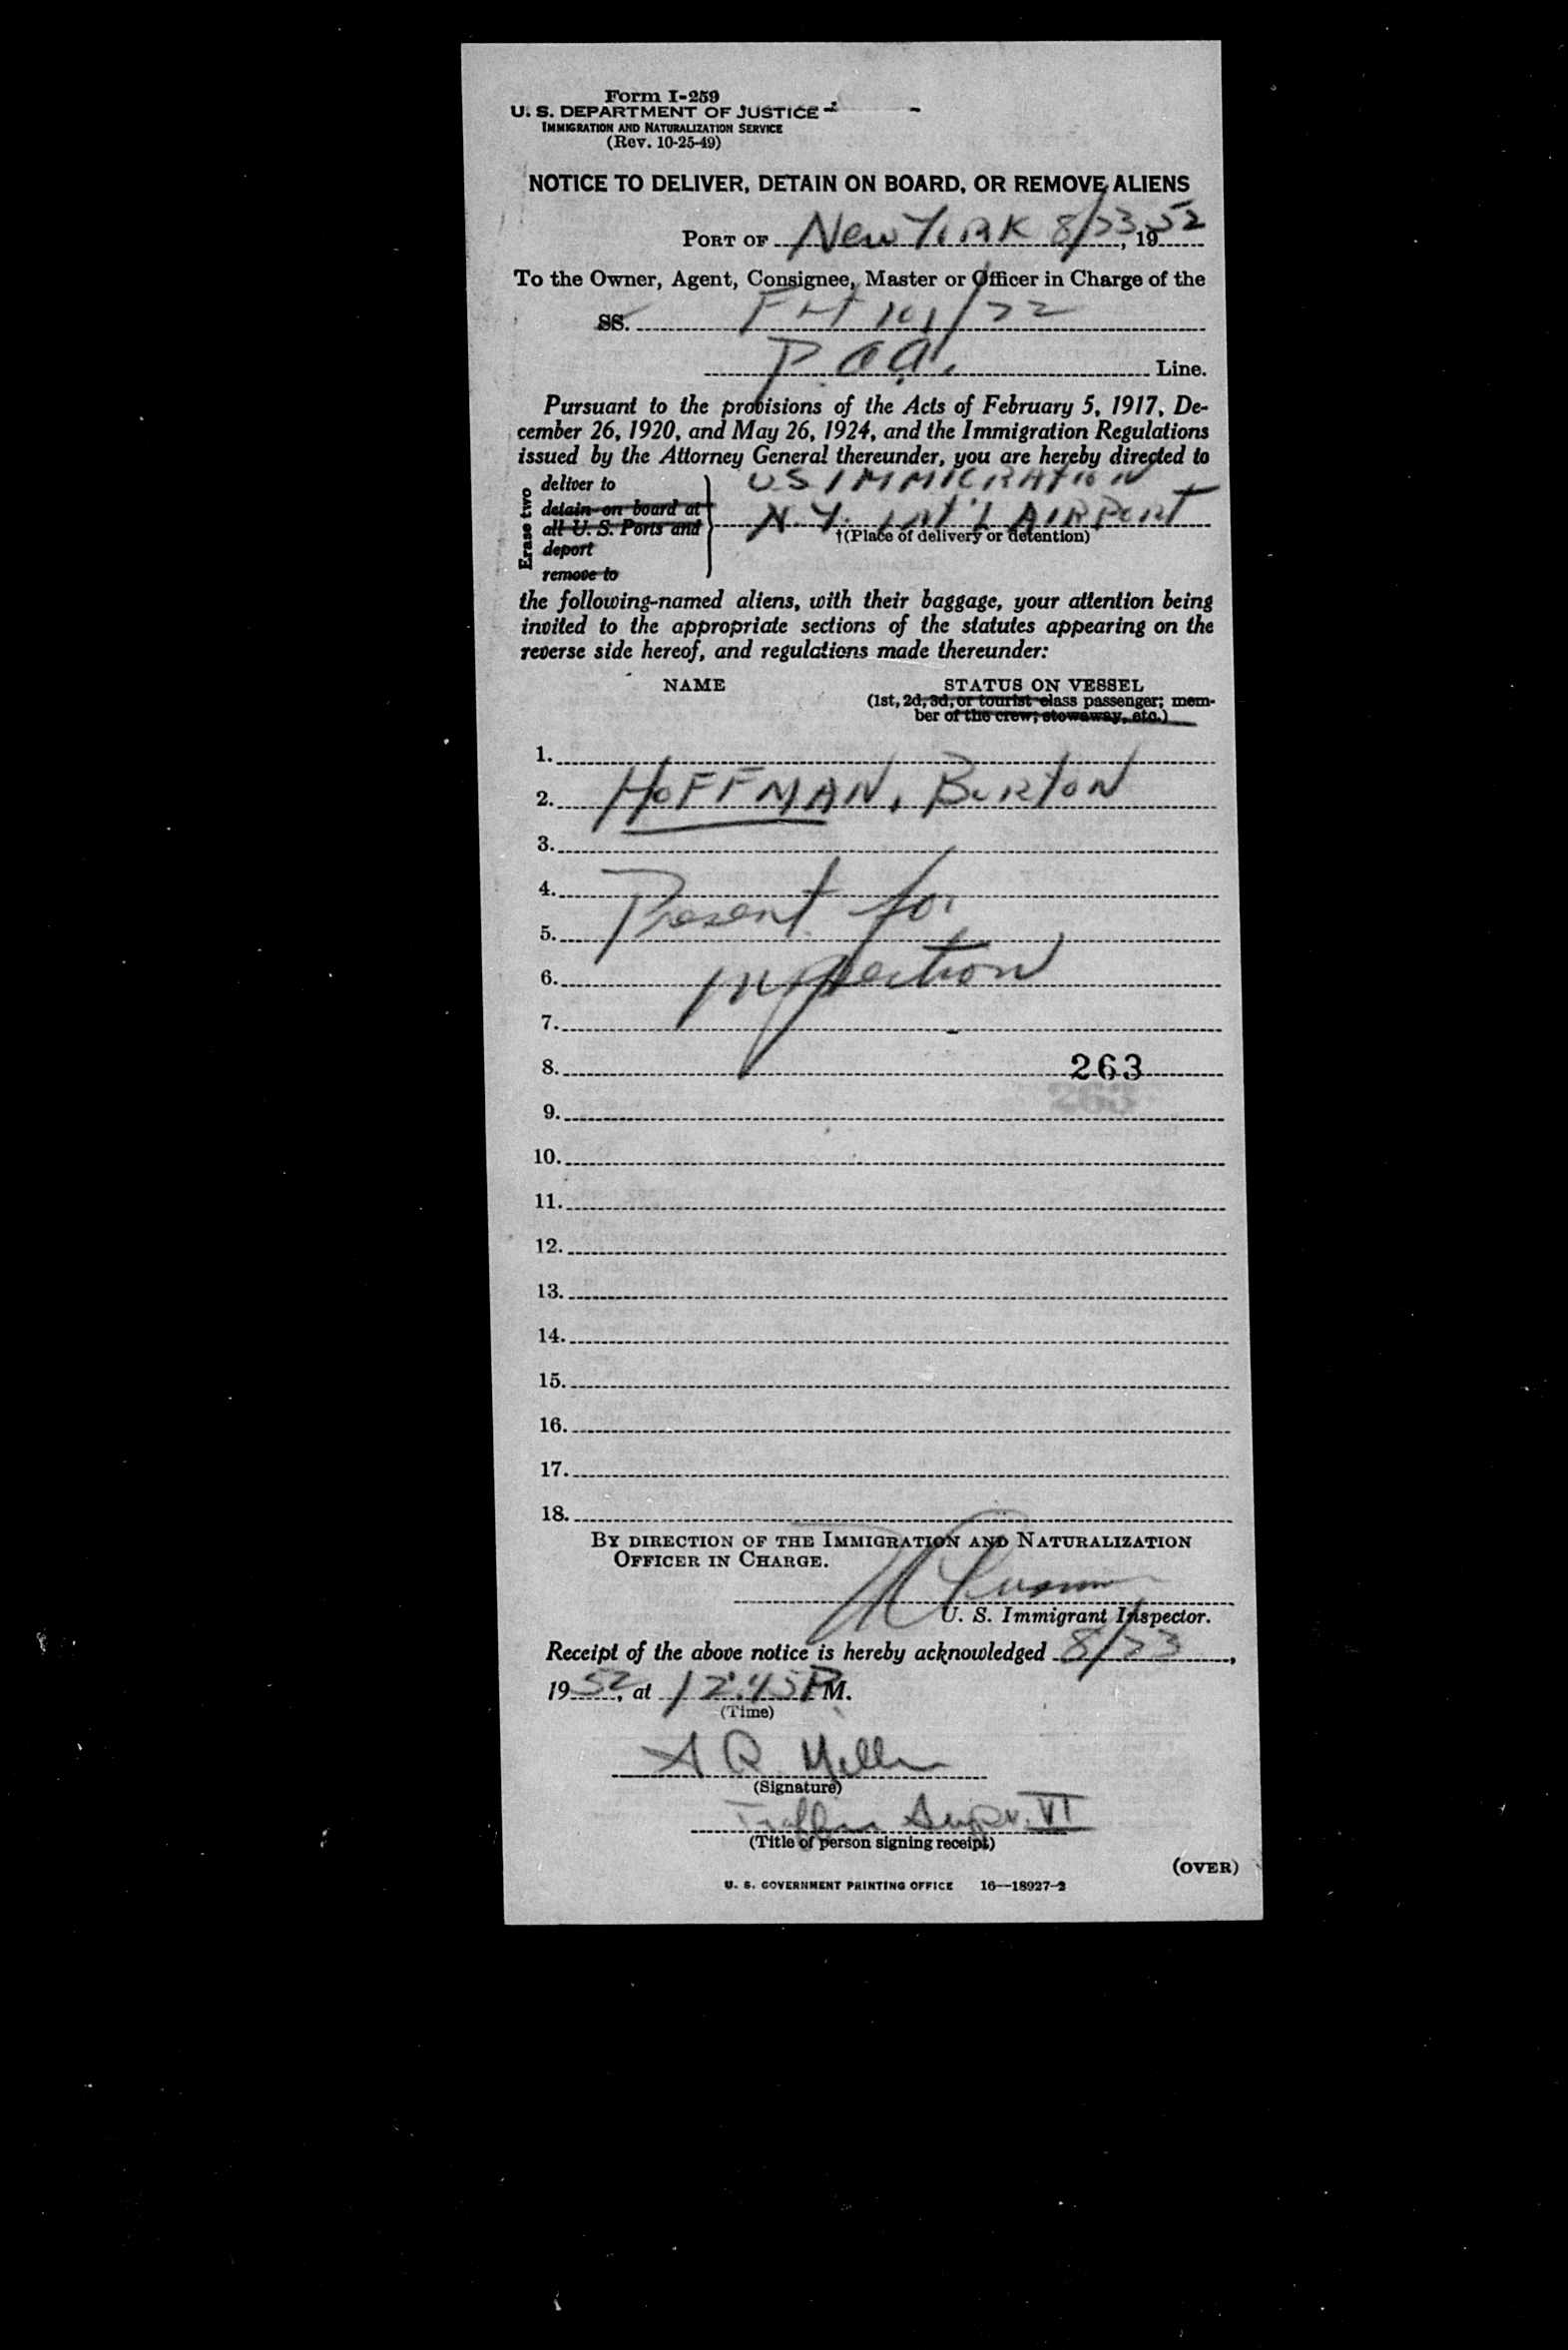 Form I-259
U. S. DEPARTMENT OF JUSTICE
IMMIGRATION AND NATURALIZATION SERVICE
(Rev. 10-25-49)
NOTICE TO DELIVER, DETAIN ON BOARD, OR REMOVE ALIENS
PORT OF New YORK 8/23, 1952
To the Owner, Agent, Consignee, Master or Officer in Charge of the
SS. Flt 101/22
P.a.a. Line.
Pursuant to the provisions of the Acts of February 5, 1917, De-
cember 26, 1920, and May 26, 1924, and the Immigration Regulations
issued by the Attorney General thereunder, you are hereby directed to
Erase two
deliver to US IMMIGRATION
detain on board at N.Y. INT'L AIRPORT
all U. S. Ports and †(Place of delivery or detention)
deport
remove to
the following-named aliens, with their baggage, your attention being
invited to the appropriate sections of the statutes appearing on the
reverse side hereof, and regulations made thereunder:
NAME STATUS ON VESSEL
(1st, 2d, 3d, or tourist class passenger; mem-
ber of the crew; stowaway, etc.)
1.
2. HOFFMAN, BURTON
3.
4.
5. Present for
6. inspection
7.
8. 263
9. 263
10.
11.
12.
13.
14.
15.
16.
17.
18.
BY DIRECTION OF THE IMMIGRATION AND NATURALIZATION
OFFICER IN CHARGE.
U. S. Immigrant Inspector.
Receipt of the above notice is hereby acknowledged 8/23,
1952, at 12:45 PM.
(Time)
A R Miller
(Signature)
Traffic Supv. VI
(Title of person signing receipt)
(OVER)
U. S. GOVERNMENT PRINTING OFFICE 16—18927-2